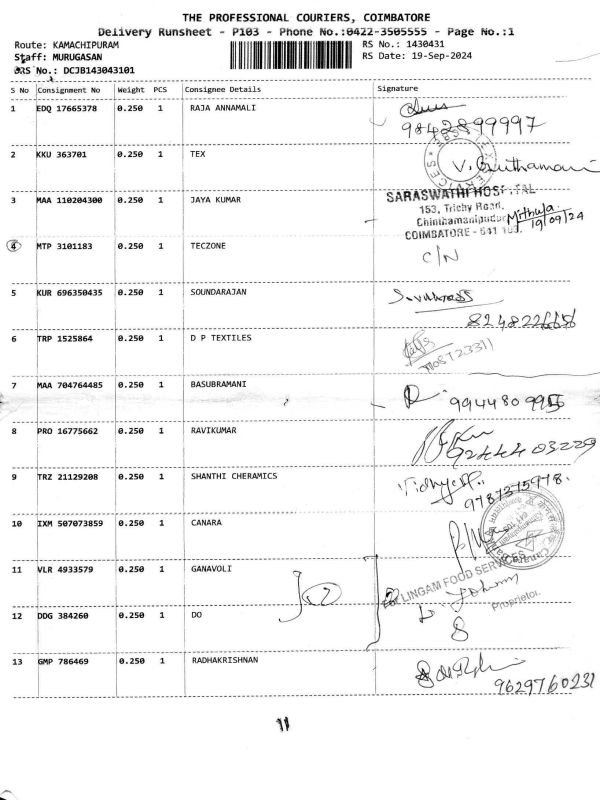 THE PROFESSIONAL COURIERS, COIMBATORE
Delivery Runsheet - P103 - Phone No.:0422-3505555 - Page No.:1
Route: KAMACHIPURAM RS No.: 1430431
Staff: MURUGASAN RS Date: 19-Sep-2024
BRS No.: DCJB143043101
S No Consignment No Weight PCS Consignee Details Signature
1 EDQ 17665378 0.250 1 RAJA ANNAMALI
9842899997
2 KKU 363701 0.250 1 TEX
3 MAA 110204300 0.250 1 JAYA KUMAR
SARASWATHI HOSPITAL
153, Trichy Road,
Mithula
19/09/24
COIMBATORE - 641 103.
4 MTP 3101183 0.250 1 TECZONE
C/N
5 KUR 696350435 0.250 1 SOUNDARAJAN
6 TRP 1525864 0.250 1 D P TEXTILES
7 MAA 704764485 0.250 1 BASUBRAMANI
8 PRO 16775662 0.250 1 RAVIKUMAR
9 TRZ 21129208 0.250 1 SHANTHI CHERAMICS
9787375978.
10 IXM 507073859 0.250 1 CANARA
11 VLR 4933579 0.250 1 GANAVOLI
LINGAM FOOD SERVICES
Proprietor.
12 DDG 384260 0.250 1 DO
13 GMP 786469 0.250 1 RADHAKRISHNAN
9629760231
11